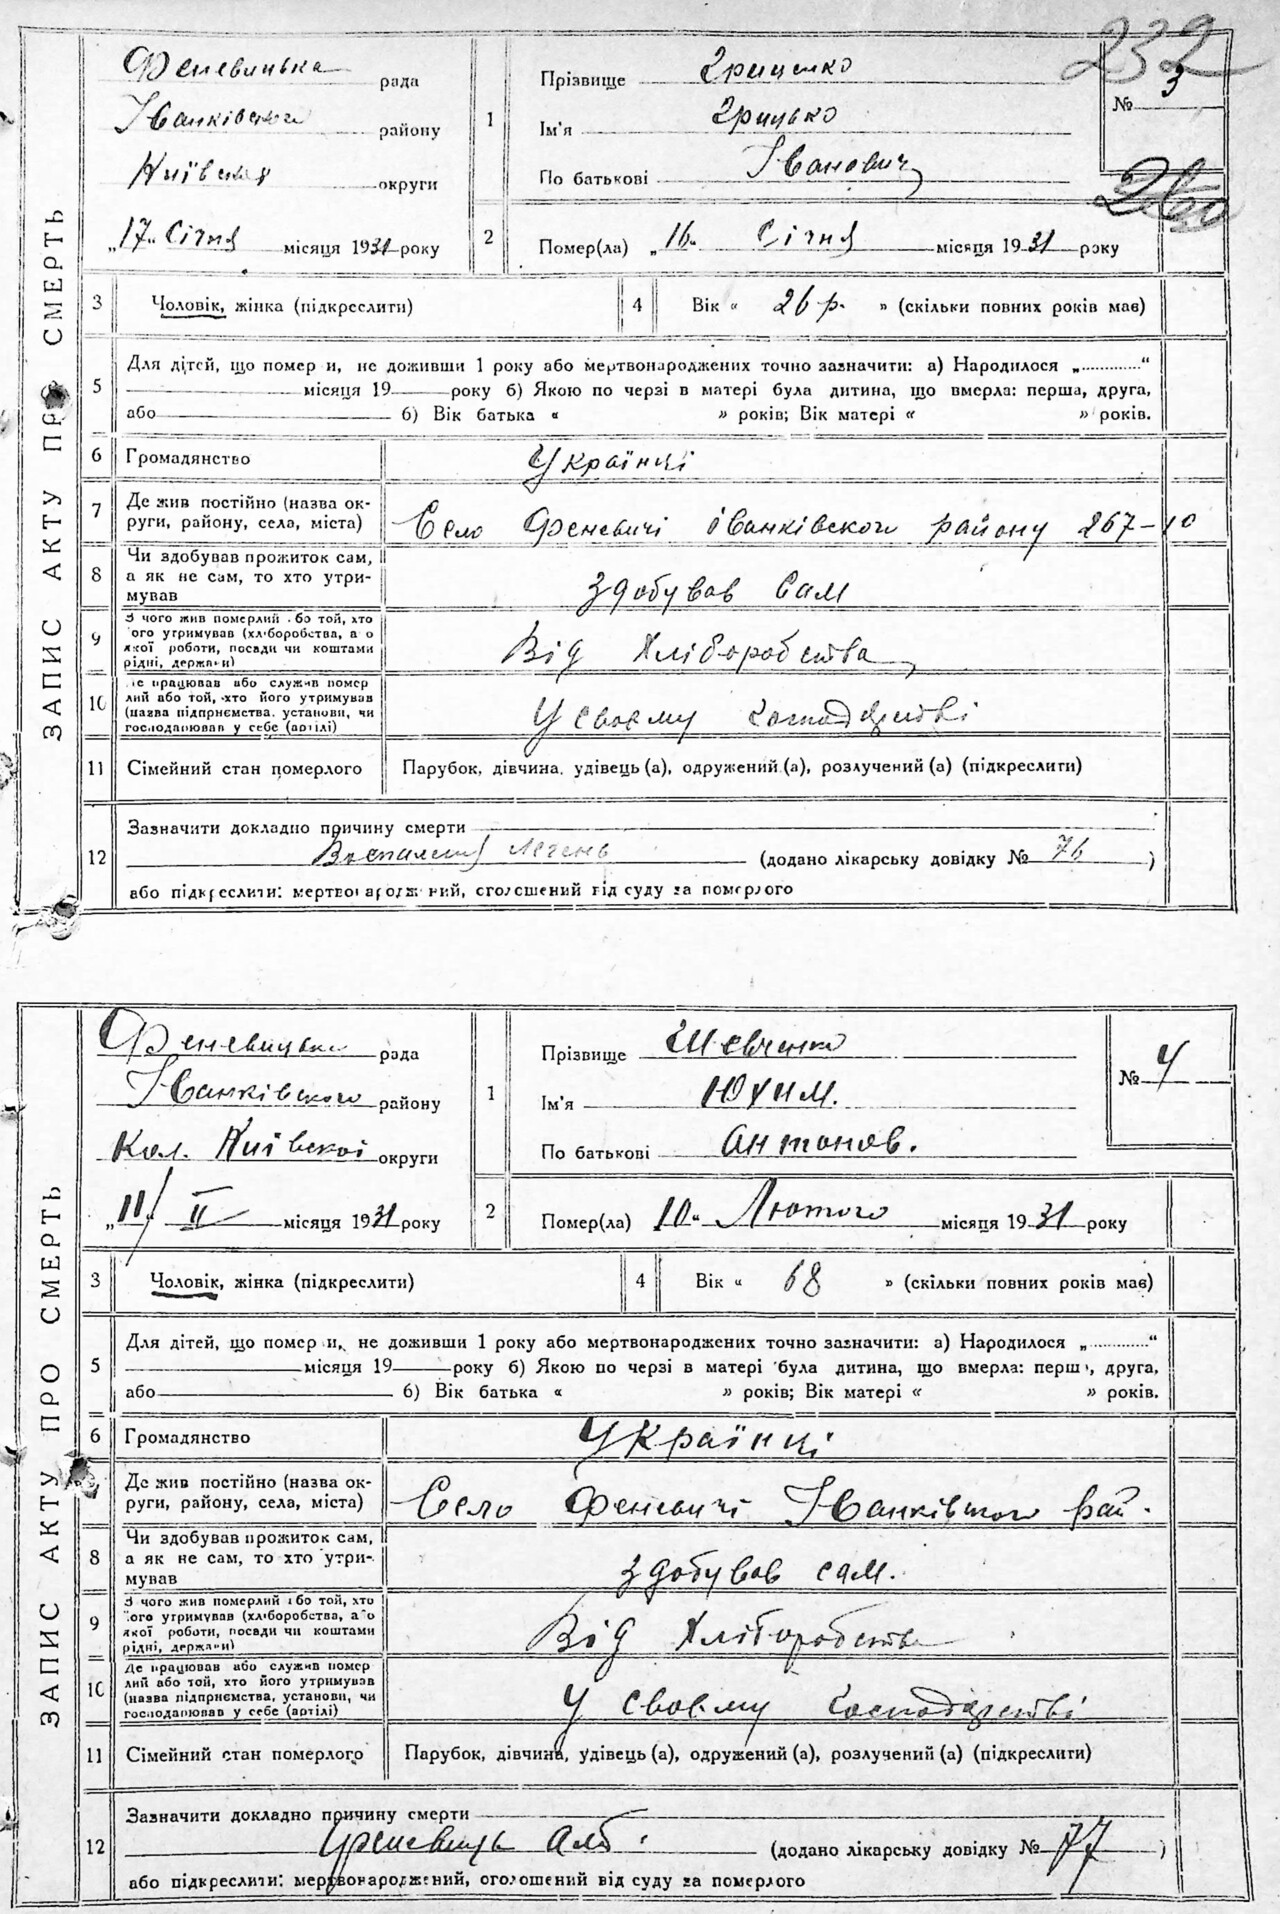 232
260
ЗАПИС АКТУ ПРО СМЕРТЬ
Феневицька рада
Іванківского району
Київская округи
„17“ Січня місяця 1931 року
1
Прізвище Гриценко
Ім'я Грицько
По батькові Іванович
№ 3
2
Помер(ла) „16“ Січня місяця 1931 року
3 Чоловік, жінка (підкреслити)
4 Вік « 26 р. » (скільки повних років мав)
5
Для дітей, що померли, не доживши 1 року або мертвонароджених точно зазначити: а) Народилося „............“
місяця 19 року б) Якою по черзі в матері була дитина, що вмерла: перша, друга,
або б) Вік батька « » років; Вік матері « » років.
6 Громадянство Українці
7 Де жив постійно (назва ок-
руги, району, села, міста) Село Феневичі іванківского району 267-10
8 Чи здобував прожиток сам,
а як не сам, то хто утри-
мував здобував Сам
9 З чого жив померлий або той, хто
його утримував (хліборобства, або
якої роботи, посади чи коштами
рідні, держави) Від Хліборобства
10 Де працював або служив помер
лий або той, хто його утримував
(назва підприємства, установи, чи
господарював у себе (артілі) У своєму господарстві
11 Сімейний стан померлого Парубок, дівчина, удівець (а), одружений (а), розлучений (а) (підкреслити)
12 Зазначити докладно причину смерти
Воспаления Легень (додано лікарську довідку № 76 )
або підкреслити: мертвонароджений, оголошений від суду за померлого
ЗАПИС АКТУ ПРО СМЕРТЬ
Феневицька рада
Іванківського району
Кол. Київскої округи
„11“ II місяця 1931 року
1
Прізвище Шевченко
Ім'я Юхим.
По батькові Антонов.
№ 4
2
Помер(ла) 10“ Лютого місяця 1931 року
3 Чоловік, жінка (підкреслити)
4 Вік « 68 » (скільки повних років мав)
5
Для дітей, що померли, не доживши 1 року або мертвонароджених точно зазначити: а) Народилося „............“
місяця 19 року б) Якою по черзі в матері була дитина, що вмерла: перша, друга,
або б) Вік батька « » років; Вік матері « » років.
6 Громадянство Українці
7 Де жив постійно (назва ок-
руги, району, села, міста) Село Феневичі Іванківського рай.
8 Чи здобував прожиток сам,
а як не сам, то хто утри-
мував здобував сам.
9 З чого жив померлий або той, хто
його утримував (хліборобства, або
якої роботи, посади чи коштами
рідні, держави) Від Хліборобства
10 Де працював або служив помер
лий або той, хто його утримував
(назва підприємства, установи, чи
господарював у себе (артілі) У своєму господарстві
11 Сімейний стан померлого Парубок, дівчина, удівець (а), одружений (а), розлучений (а) (підкреслити)
12 Зазначити докладно причину смерти
(додано лікарську довідку № 77 )
або підкреслити: мертвонароджений, оголошений від суду за померлого